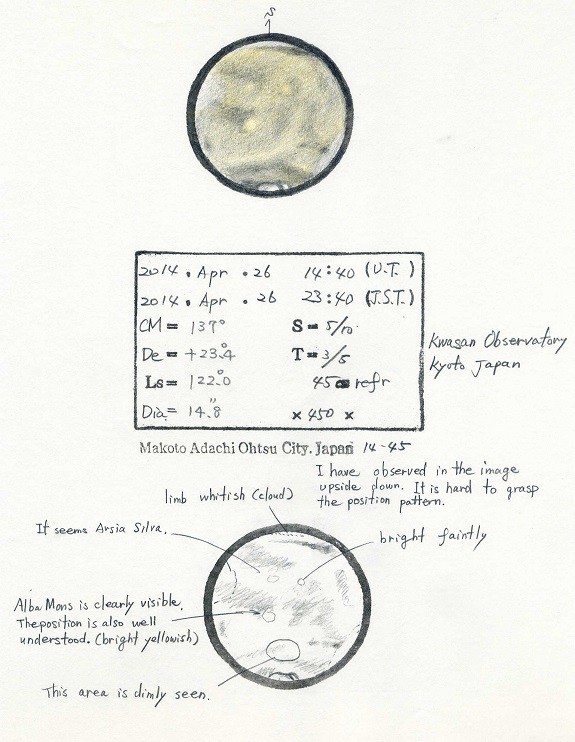 S
2014. Apr. 26 14:40 (U.T.)
2014. Apr. 26 23:40 (J.S.T.)
CM= 137° S= 5/10
De= +23.°4 T= 3/5
Ls= 122.°0 45cm refr
Dia= 14."8 × 450 ×
Kwasan Observatory
Kyoto Japan
Makoto Adachi Ohtsu City. Japan 14-45
I have observed in the image
upside down. It is hard to grasp
the position pattern.
limb whitish (cloud)
It seems Arsia Silva.
bright faintly
Alba Mons is clearly visible.
The position is also well
understood. (bright yellowish)
This area is dimly seen.